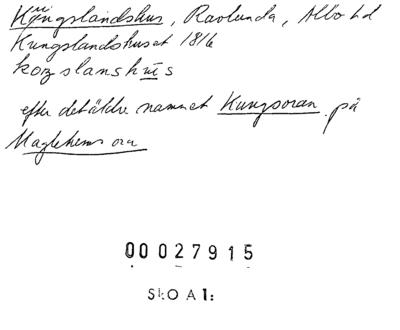 Kungslandshus, Ravlunda, Albo hd
Kungslandshuset 1816
kozslanshūs
efter det äldre namnet Kungsoran på
Maglehems ora
00027915
SkO A1: